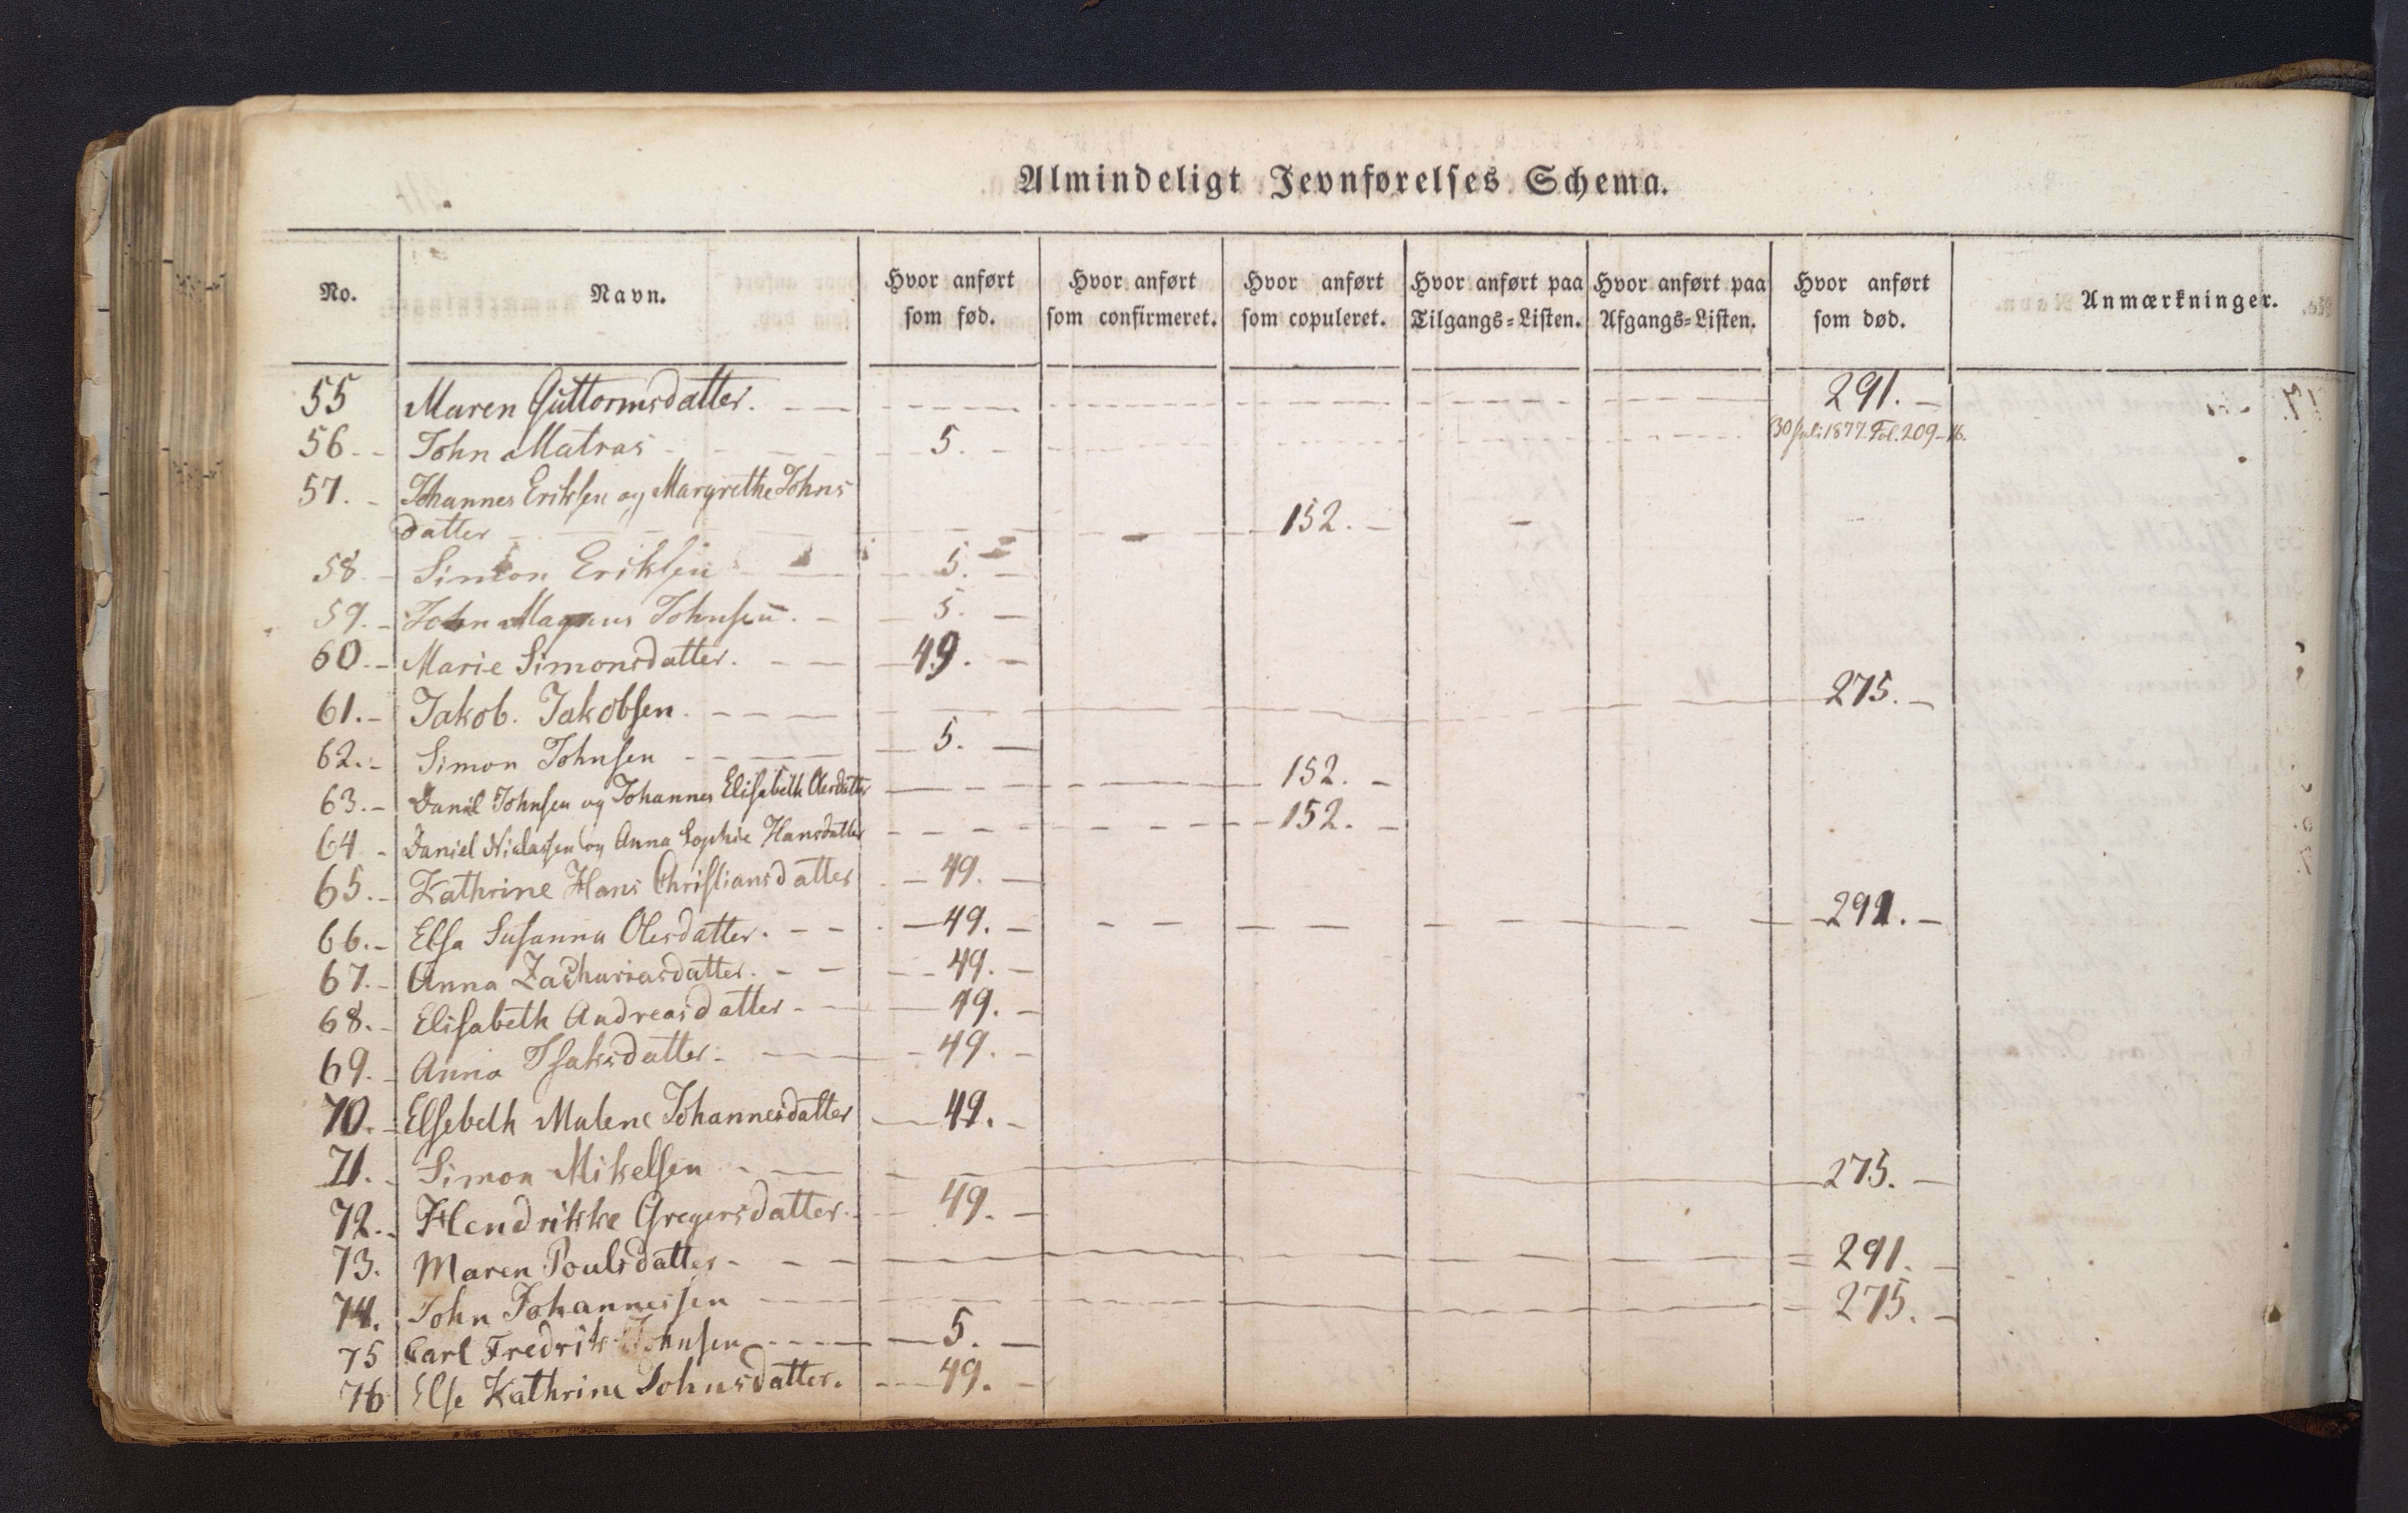 Almindeligt Jevnførelses Schema.
No. Navn. Hvor anført som fød. Hvor anført som confirmeret. Hvor anført som copuleret. Hvor anført paa Tilgangs-Listen. Hvor anført paa Afgangs-Listen. Hvor anført som død. Anmærkninger.
55 Maren Guttormsdatter. 291.
56. John Matras 5. 30 Juli 1877. Fol. 209-16.
57. Johannes Eriksen og Margrethe Johns
datter 152.
58. Simon Eriksen 5.
59. John Magnus Johnsen. 5.
60. Marie Simonsdatter. 49.
61. Jakob. Jakobsen. 275.
62. Simon Johnsen 5.
63. Daniel Johnsen og Johannes Elisabeth Olesdatter 152.
64 Daniel Niclassen og Anna Sophie Hansdatter 152.
65. Kathrine Hans Christiansdatter 49.
66. Elsa Susanna Olesdatter. 49. 291.
67. Anna Zachariasdatter. 49.
68. Elisabeth Andreasdatter 49.
69. Anna Isaksdatter. 49.
70. Elsebeth Malene Johannesdatter 49.
71. Simon Mikelsen 275.
72. Hendrikke Gregersdatter. 49.
73. Maren Poulsdatter 291.
74. John Johannessen 275.
75 Carl Fredrik Johnsen 5.
76 Else Kathrine Johnsdatter. 49.